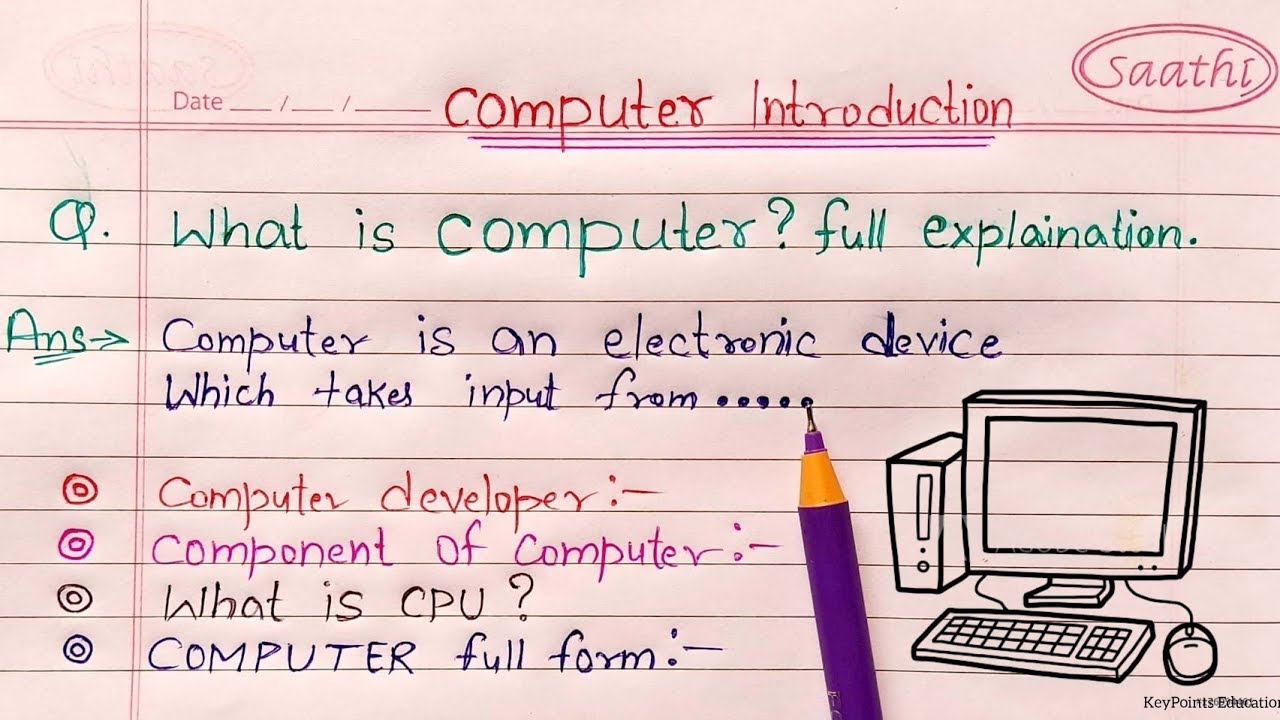 saathi
Date __/__/____
Computer Introduction
Q. What is computer? full explaination.
Ans→ Computer is an electronic device
Which takes input from.....
Computer developer:-
Component of computer:-
What is CPU?
COMPUTER full form:-
KeyPoints Education